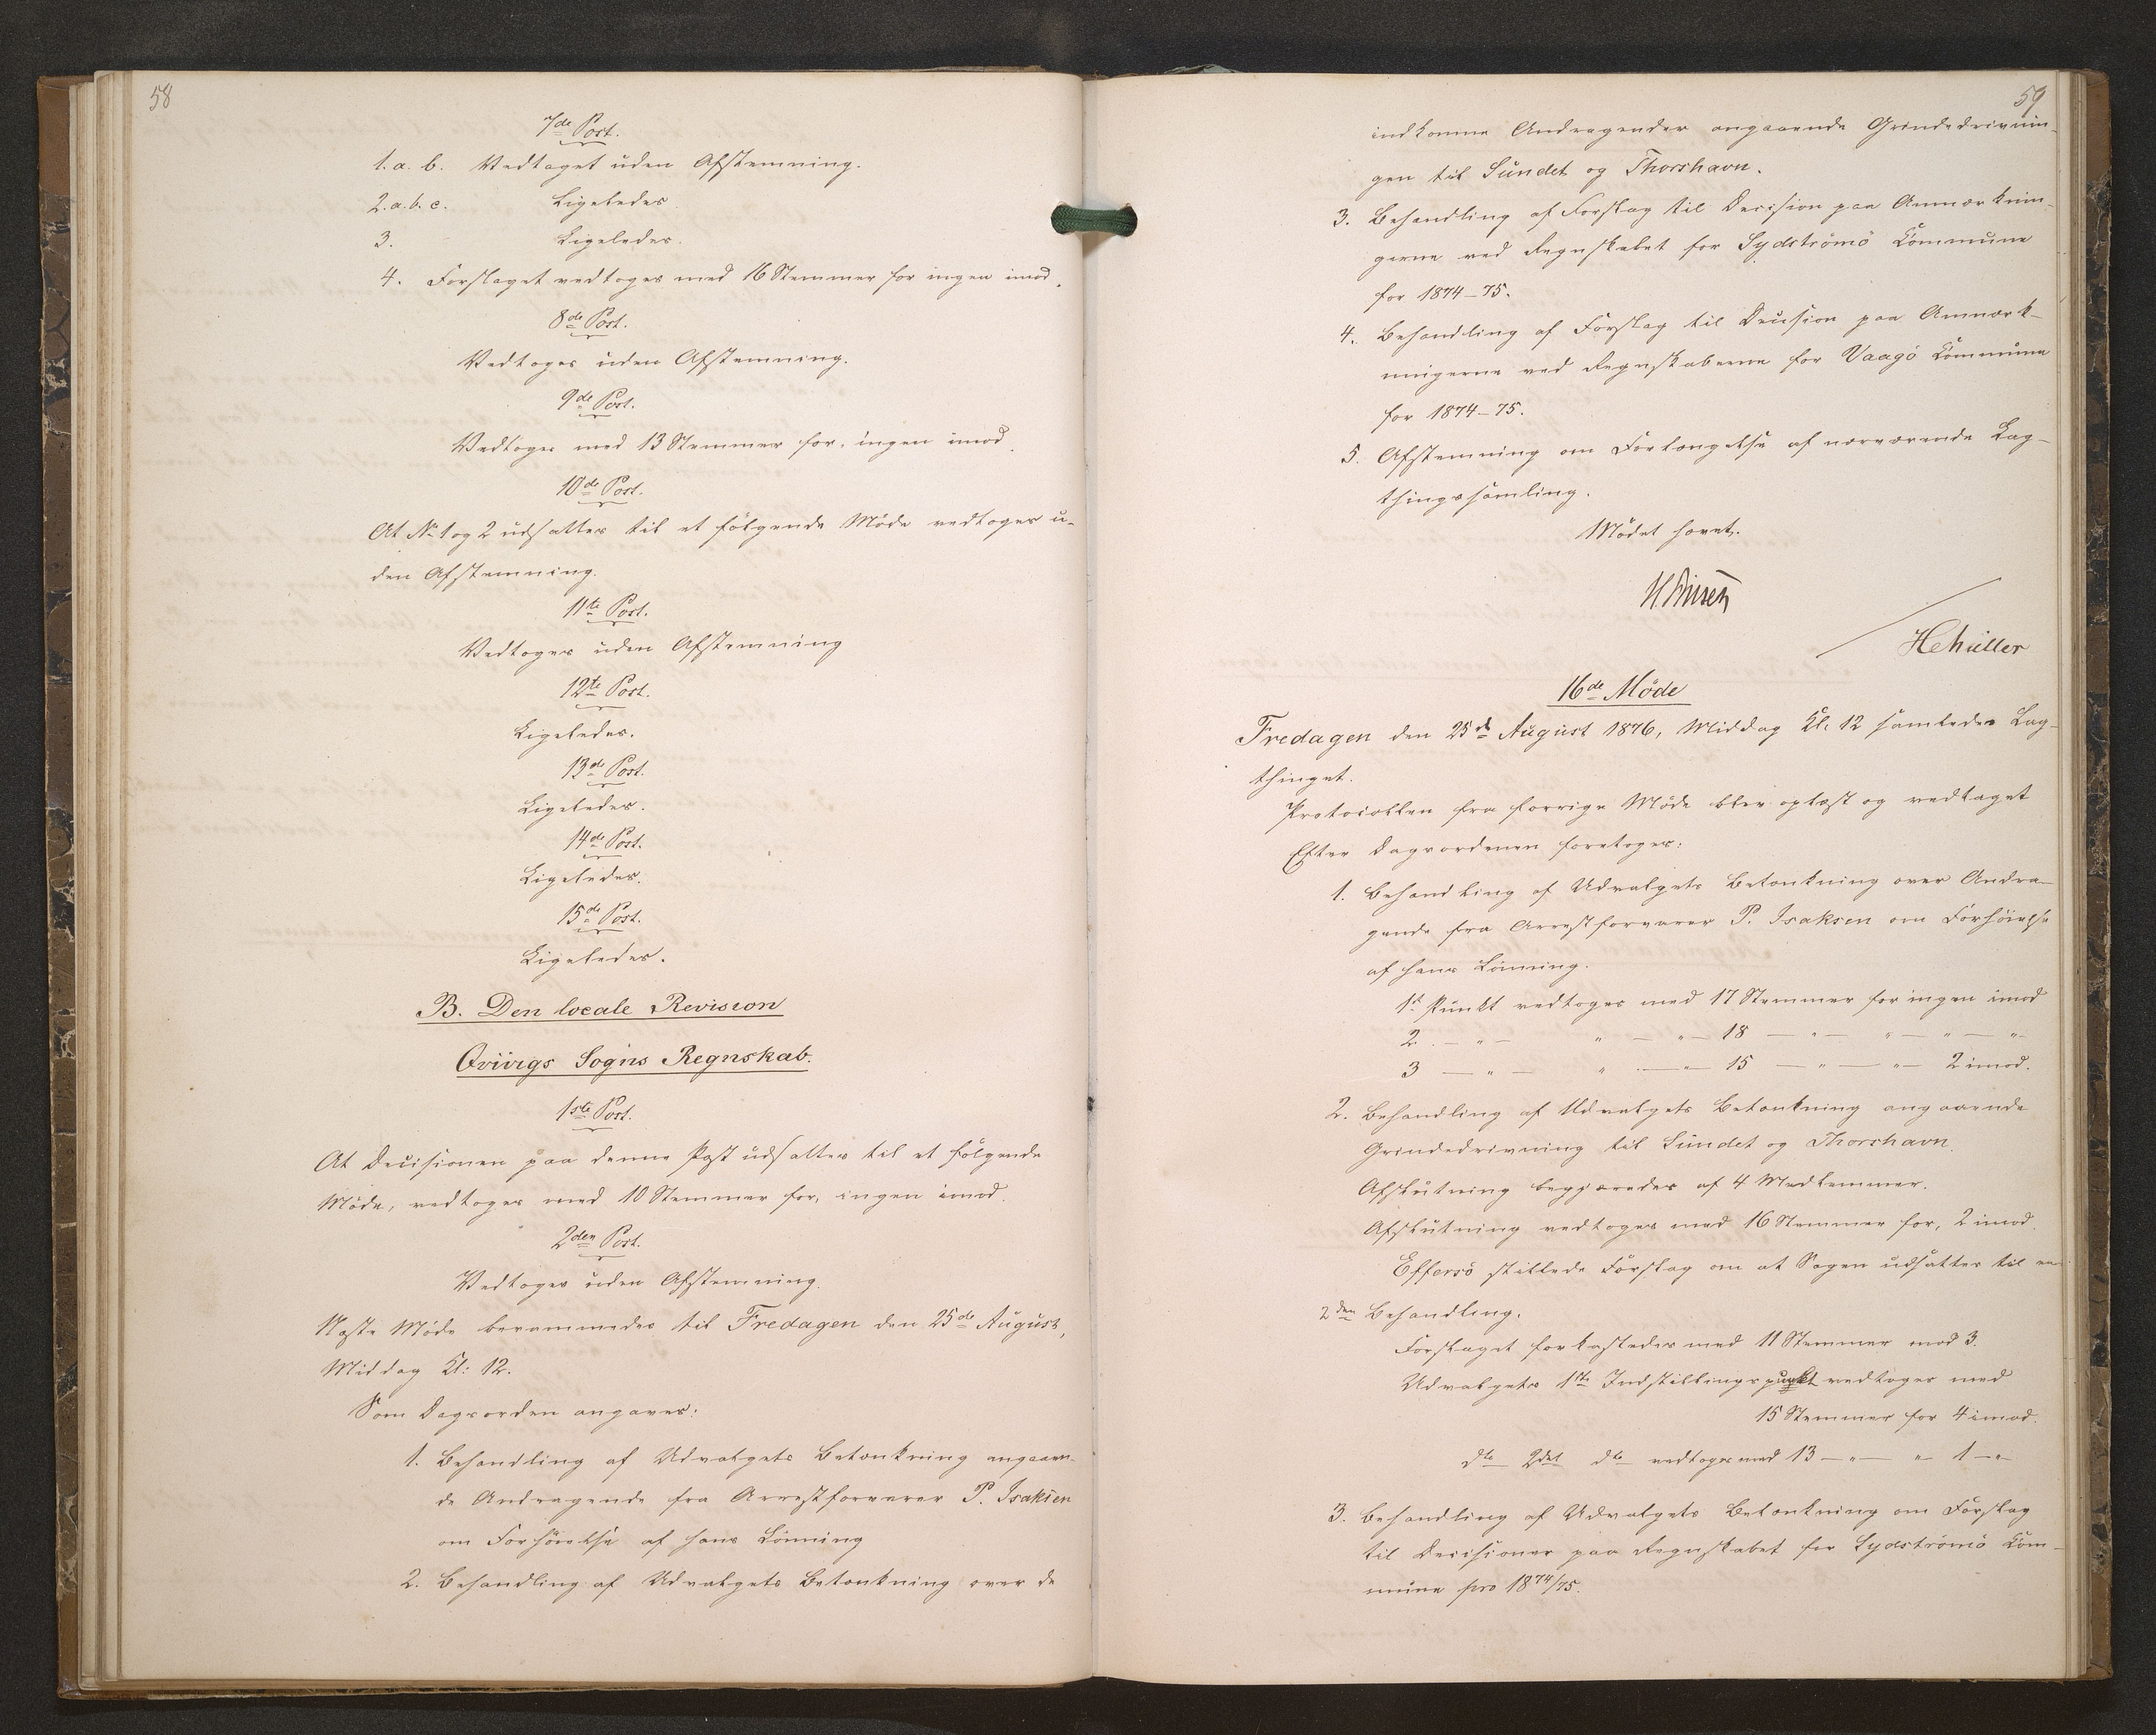 58
7de Post.
1. a. b. Vedtaget uden Afstemning.
2. a. b. c. Ligeledes
3. Ligeledes.
4. Forslaget vedtoges med 16 Stemmer for ingen imod.
8de Post.
Vedtoges uden Afstemning.
9de Post.
Vedtoges med 13 Stemmer for, ingen imod.
10de Post.
At No 1 og 2 udsættes til et følgende Møde vedtoges u-
den Afstemning.
11te Post.
Vedtoges uden Afstemning
12te Post.
Ligeledes.
13de Post.
Ligeledes.
14de Post.
Ligeledes.
15de Post.
Ligeledes.
B. Den locale Revision
Qvivigs Sogns Regnskab.
1ste Post.
At Decisionen paa denne Post udsættes til et følgende
Møde, vedtoges med 10 Stemmer for, ingen imod.
2den Post.
Vedtoges uden Afstemning.
Næste Møde berammedes til Fredagen den 25de August,
Middag Kl: 12.
Som Dagsorden angaves:
1. Behandling af Udvalgets Betænkning angaaen-
de Andragende fra Arrestforvarer P. Isaksen
om Forhøielse af hans Lønning
2. Behandling af Udvalgets Betænkning over de
59
indkomne Andragender angaaende Grindedrivnin-
gen til Sundet og Thorshavn.
3. Behandling af Forslag til Decision paa Anmærknin-
gerne ved Regnskabet for Sydströmö Kommune
for 1874-75.
4. Behandling af Forslag til Decision paa Anmærk-
ningerne ved Regnskaberne for Vaagö Kommune
for 1874-75.
5. Afstemning om Forlængelse af nærværende Lag-
thingssamling.
Mödet hævet.
HMüller
16de Möde
Fredagen den 25de August 1876, Middag Kl. 12 samledes Lag-
thinget.
Protocollen fra forrige Möde blev oplæst og vedtaget
Efter Dagsordenen foretoges:
1. Behandling af Udvalgets Betænkning over Andra-
gende fra Arrestforvarer P. Isaksen om Forhöielse
af hans Lönning.
1st Punkt vedtoges med 17 Stemmer for ingen imod
2. — " — " — " — 18 — " — " — " — "
3 — " — " — " — 15 — " — " — 2 imod.
2. Behandling af Udvalgets Betænkning angaaende
Grindedrivning til Sundet og Thorshavn.
Afslutning begjæredes af 4 Medlemmer.
Afslutning vedtoges med 16 Stemmer for, 2 imod.
Effersö stillede Forslag om at Sagen udsættes til en
2den Behandling.
Forslaget forkastedes med 11 Stemmer mod 3.
Udvalgets 1ste Indstillingspunkt vedtoges med
15 Stemmer for 4 imod.
dto 2det dto vedtoges med 13 — " — " 1 — "
3. Behandling af Udvalgets Betænkning om Forslag
til Decisioner paa Regnskabet for Sydströmö Kom-
mune pro 1874/75.